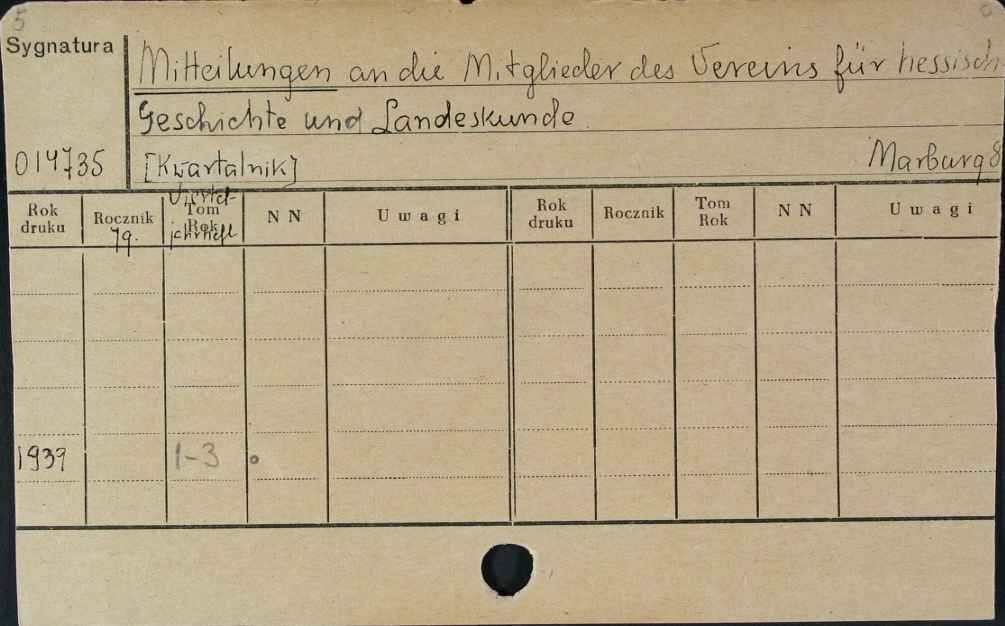 5
Sygnatura
Mitteilungen an die Mitglieder des Vereins für hessisch
Geschichte und Landeskunde.
014735 [Kwartalnik] Marburg 8
Viertel-
Rok druku Rocznik Tom Rok N N Uwagi Rok druku Rocznik Tom Rok N N Uwagi
Jg. jahrheft
1939 1-3